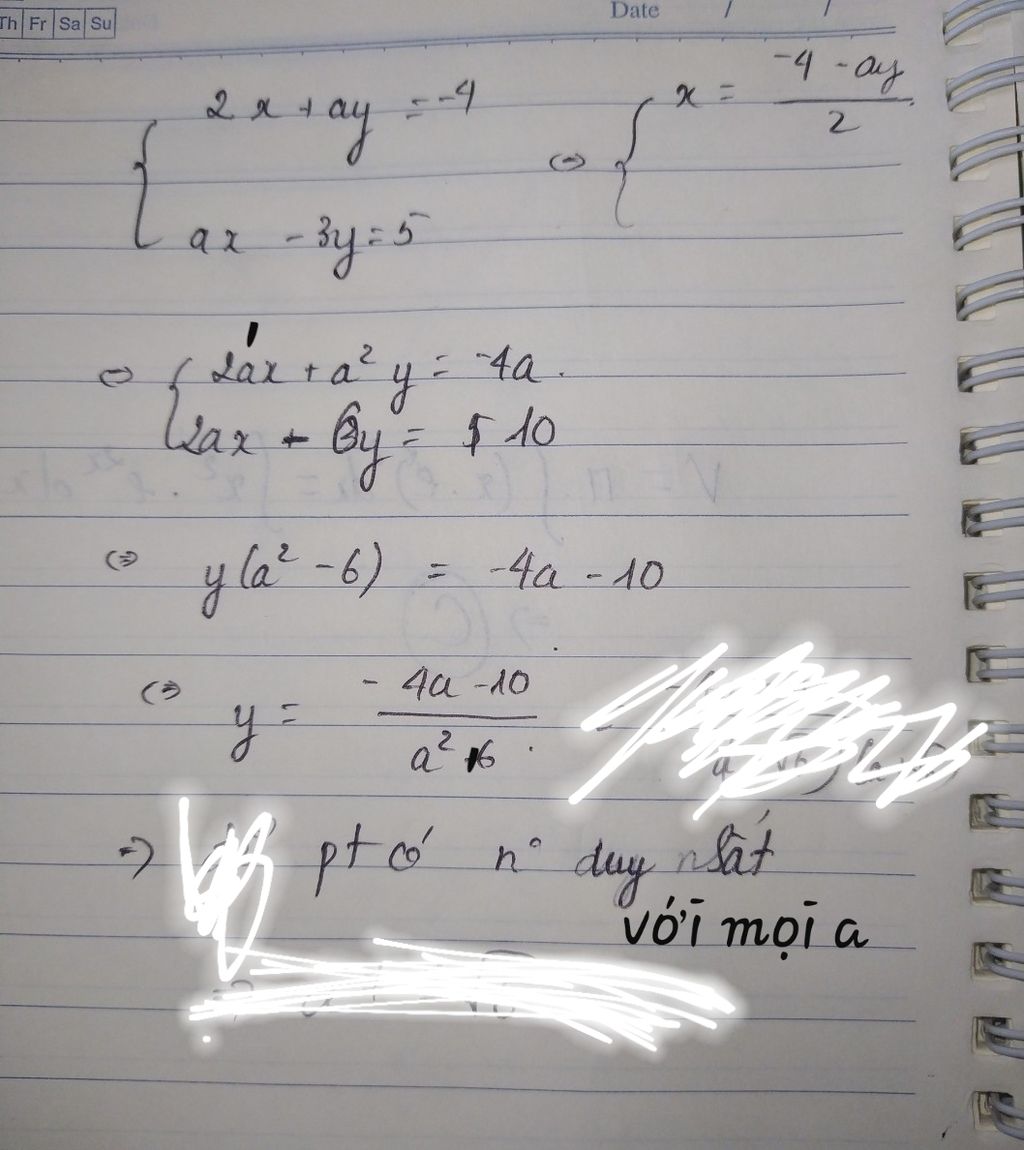 Th Fr Sa Su Date / /
{ 2x + ay = -4 ⇔ { x = (-4 - ay)/2
ax - 3y = 5
⇔ { 2ax + a² y = -4a.
2ax - 6y = 10
⇔ y(a² - 6) = -4a - 10
⇔ y = (-4a - 10)/(a² + 6)
=> pt có n° duy nhất
với mọi a